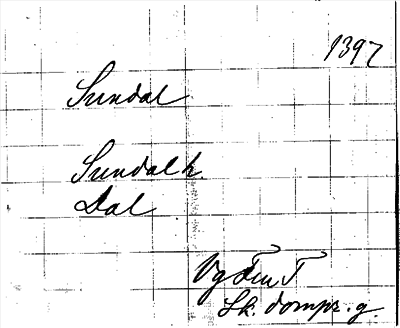 1397
Sundal
Sundal h.
Dal
Vg
Sk. dompr. g.